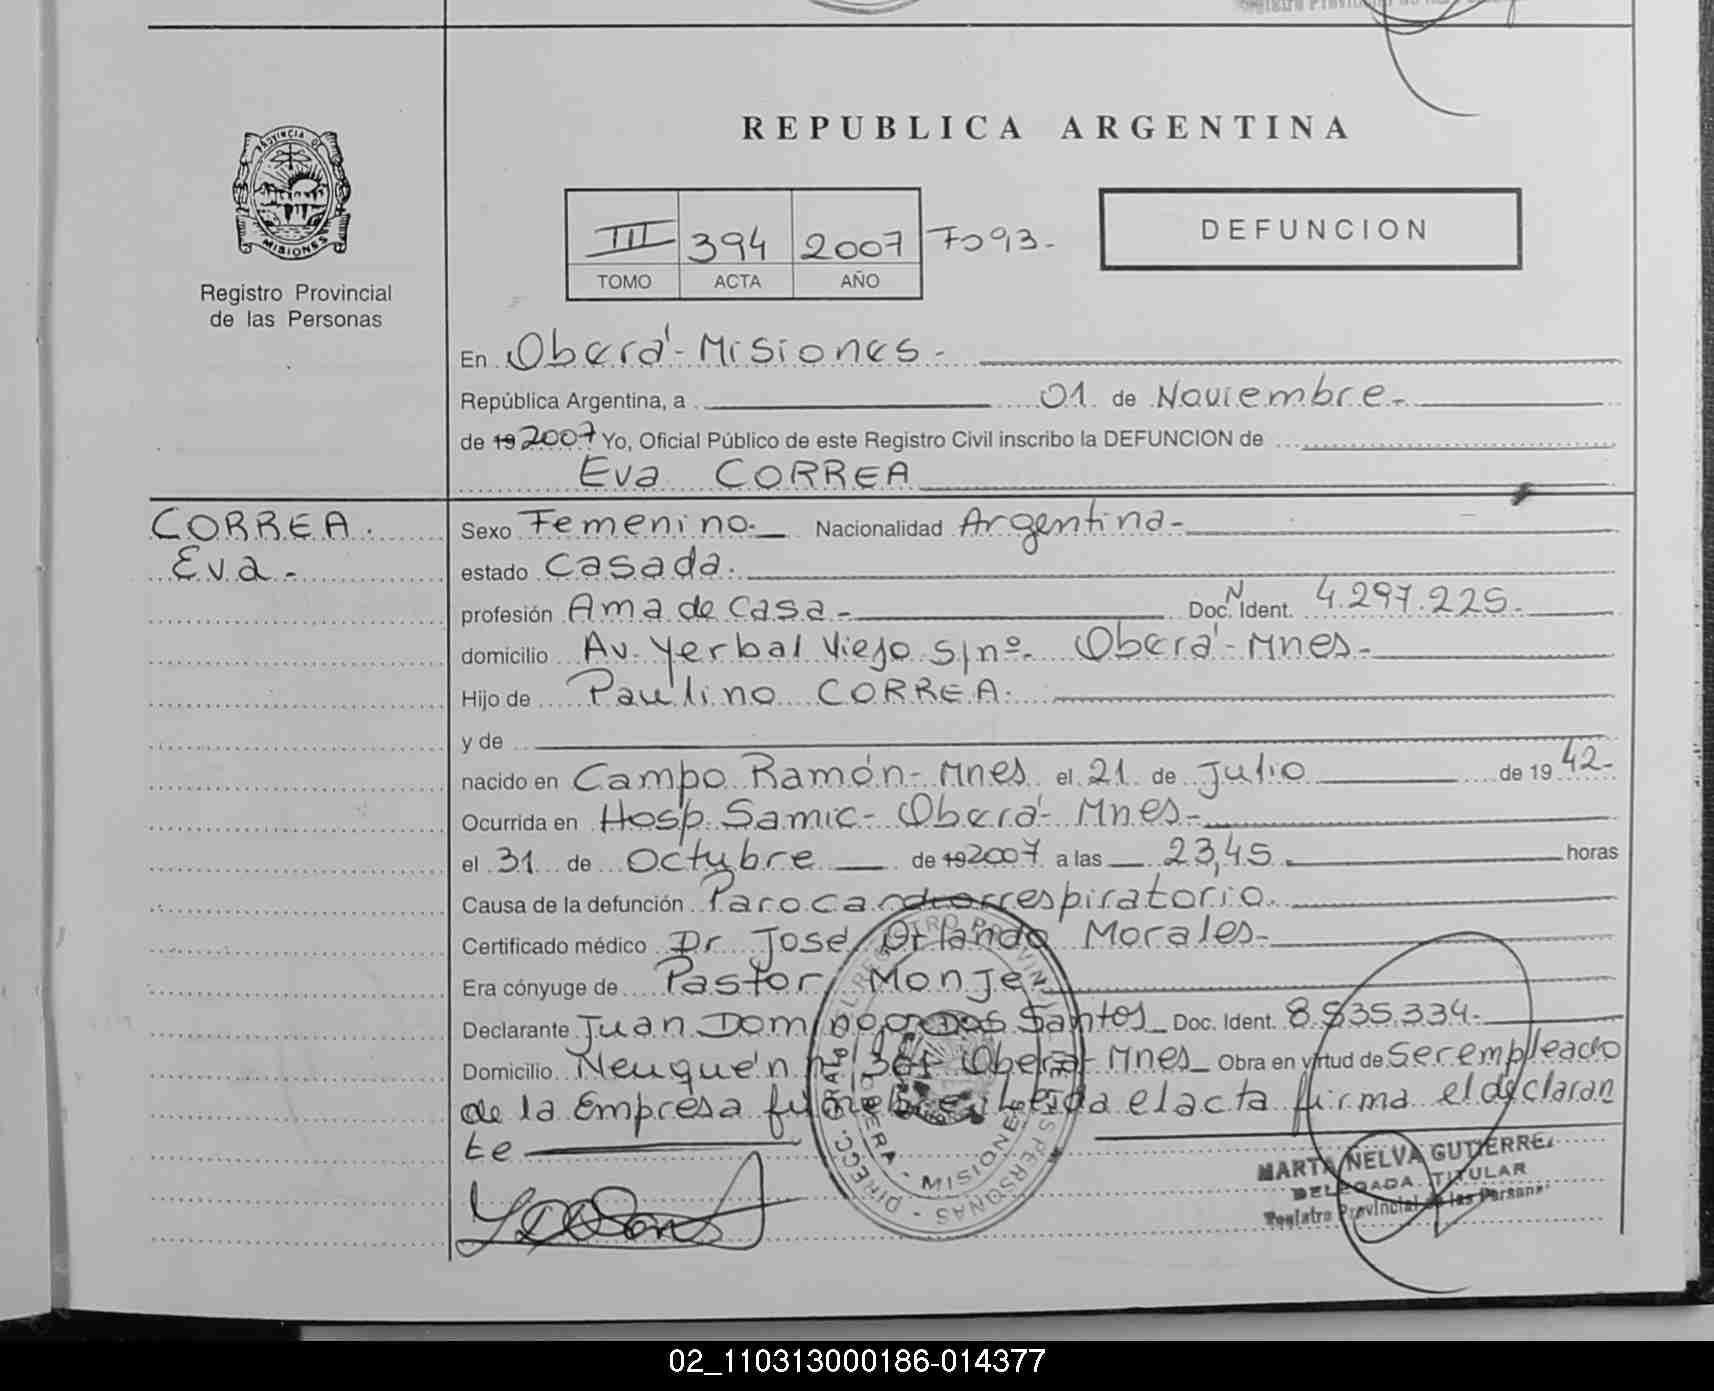 REPUBLICA ARGENTINA
PROVINCIA DE
MISIONES
Registro Provincial
de las Personas
III 394 2007 Fo 93.-
TOMO ACTA AÑO
DEFUNCION
En Oberá - Misiones.-
República Argentina, a 01 de Noviembre.-
de 19 2007 Yo, Oficial Público de este Registro Civil inscribo la DEFUNCION de
Eva CORREA
CORREA.
Eva.-
Sexo Femenino.- Nacionalidad Argentina.-
estado Casada.
profesión Ama de casa.- Doc. N Ident. 4.297.225.-
domicilio Av. Yerbal Viejo s/nº. Oberá - Mnes.-
Hijo de Paulino CORREA.
y de
nacido en Campo Ramón - Mnes el 21 de Julio de 19 42.-
Ocurrida en Hosp. Samic - Oberá - Mnes.-
el 31 de Octubre de 19 2007 a las 23,45 horas
Causa de la defunción Paro cardiorrespiratorio.
Certificado médico Dr José Orlando Morales.-
Era cónyuge de Pastor Monje.-
Declarante Juan Domingo Dos Santos Doc. Ident. 8.535.334.-
Domicilio Neuquén Oberá - Mnes Obra en virtud de Ser empleado
de la Empresa fúnebre. Leida el acta firma el declaran
te
DIRECC. GRAL. DEL REGISTRO PROVINCIAL DE LAS PERSONAS
OBERA - MISIONES
MARTA NELVA GUTIERREZ
DELEGADA TITULAR
Registro Provincial de las Personas
02_110313000186-014377